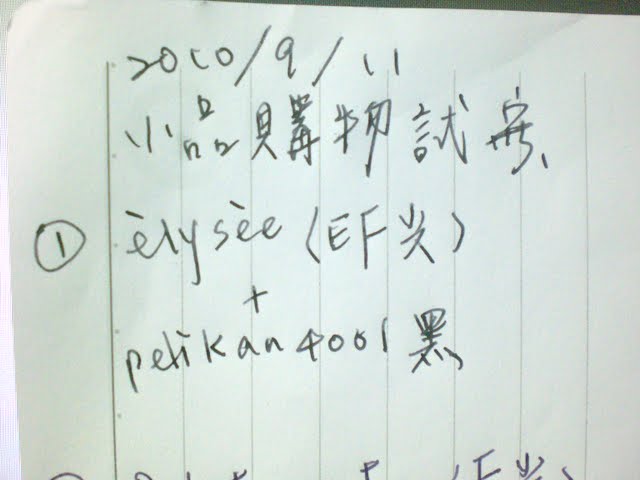 2010/9/11
小品購物試寫
① èlysèe (EF尖)
+
pelikan 4001 黑
(F尖)